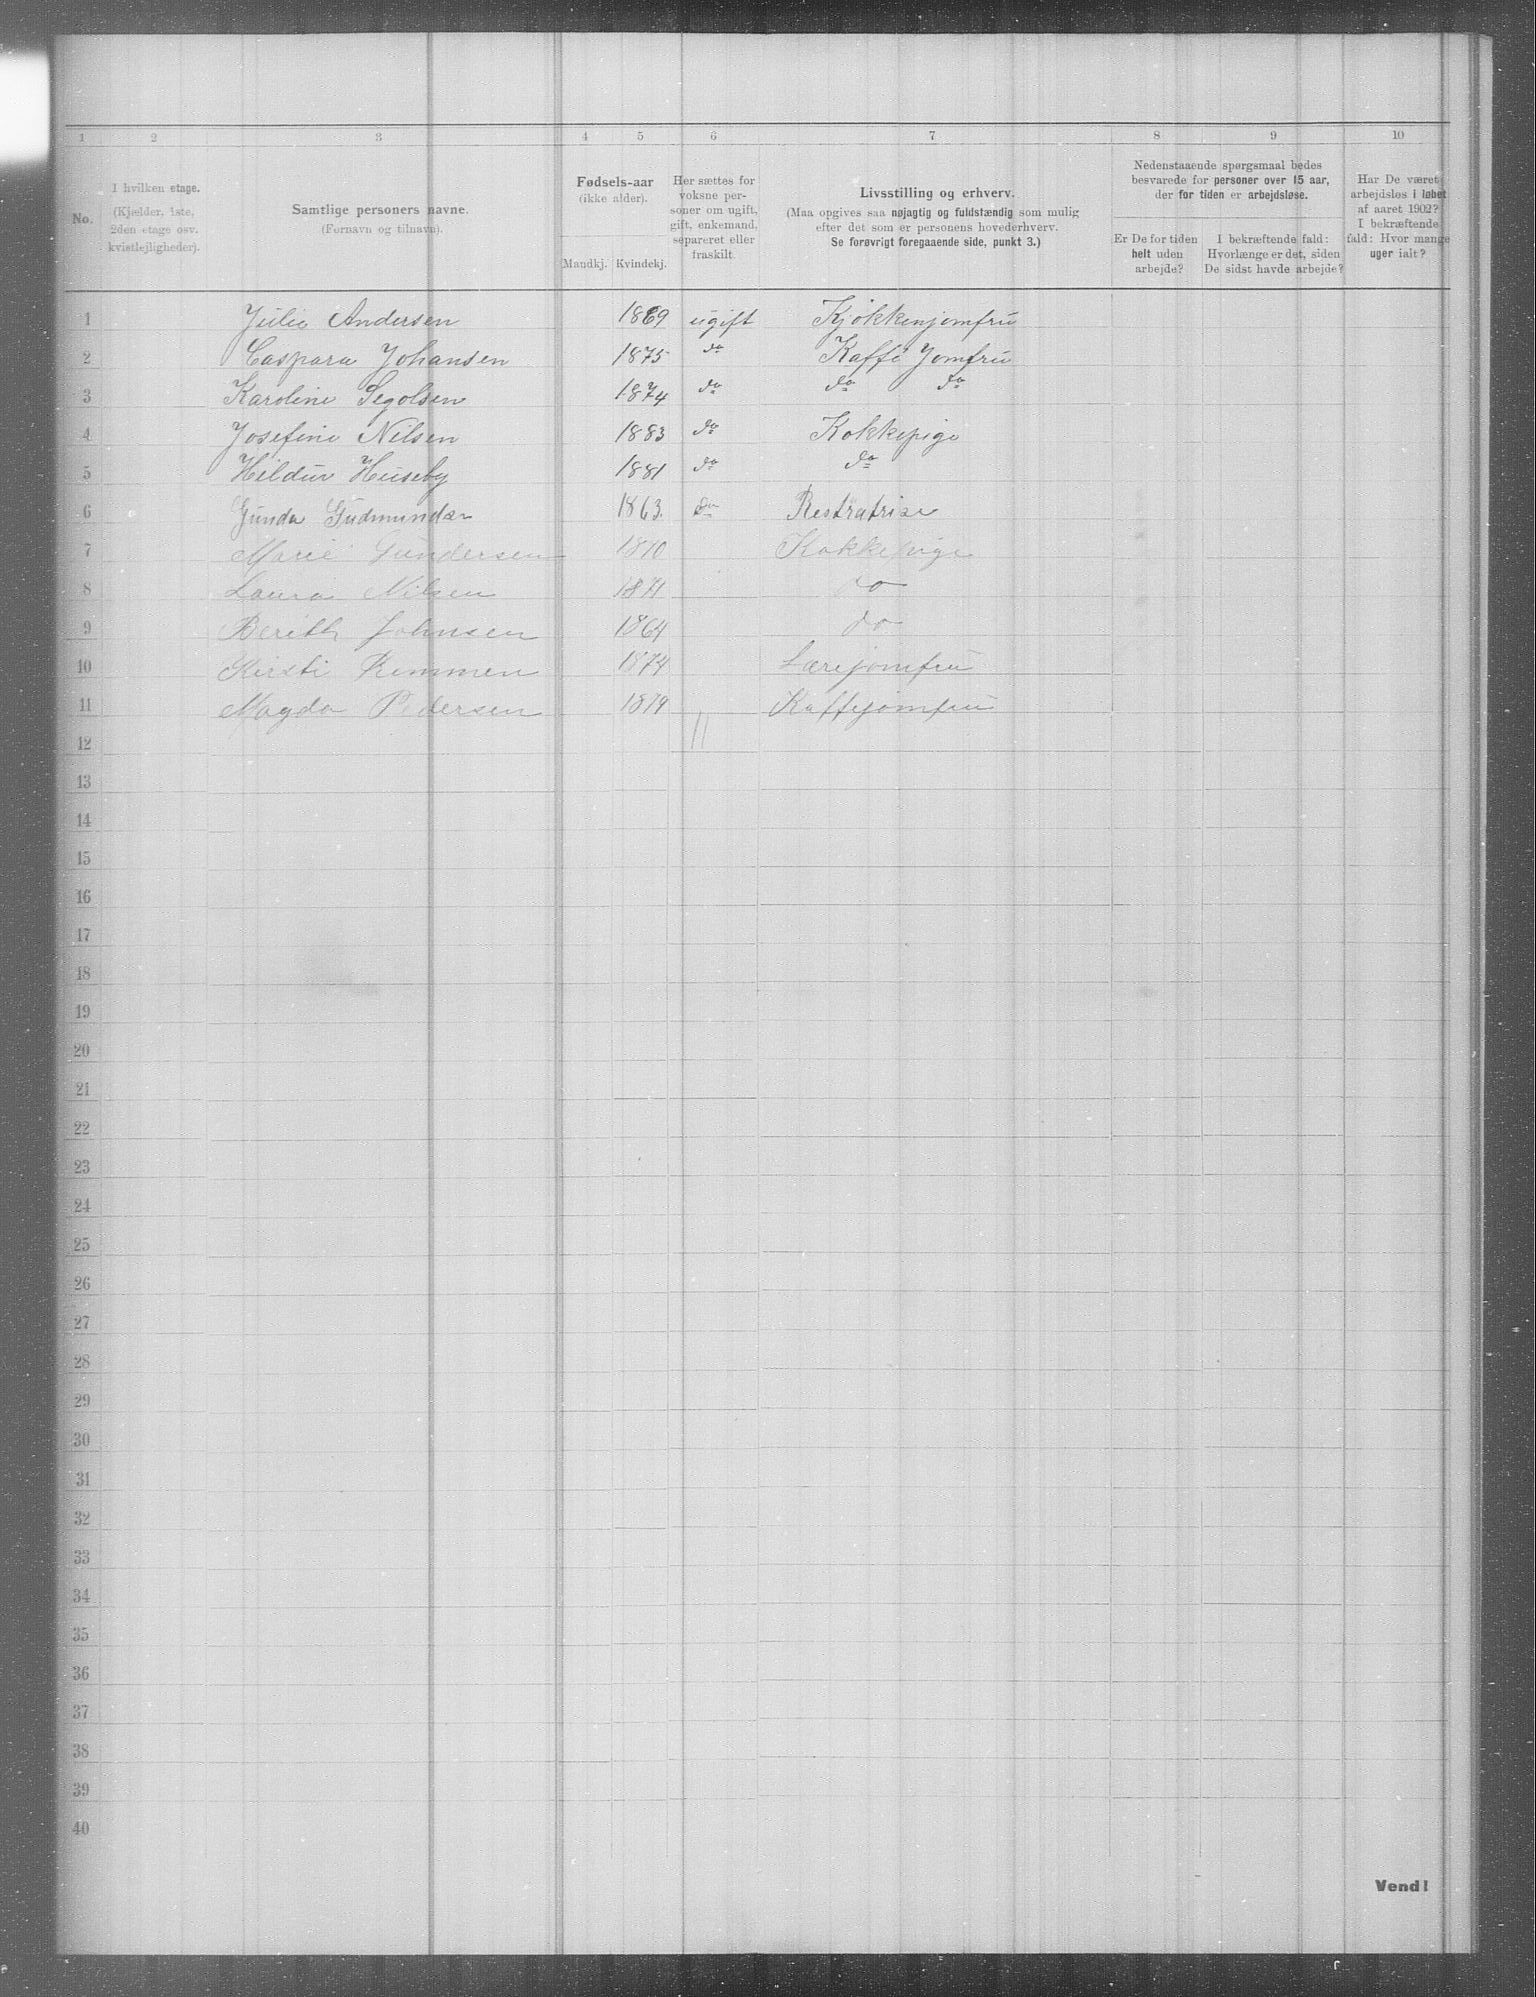 1 2 3 4 5 6 7 8 9 10
No.
I hvilken etage.
(Kjælder, 1ste,
2den etage osv.
kvistlejligheder).
Samtlige personers navne.
(Fornavn og tilnavn).
Fødsels-aar
(ikke alder).
Mandkj. Kvindekj.
Her sættes for
voksne per-
soner om ugift,
gift, enkemand,
separeret eller
fraskilt.
Livsstilling og erhverv.
(Maa opgives saa nøjagtig og fuldstændig som mulig
efter det som er personens hovederhverv.
Se forøvrigt foregaaende side, punkt 3.)
Nedenstaaende spørgsmaal bedes
besvarede for personer over 15 aar,
der for tiden er arbejdsløse.
Er De for tiden
helt uden
arbejde?
I bekræftende fald:
Hvorlænge er det, siden
De sidst havde arbejde?
Har De været
arbejdsløs i løbet
af aaret 1902?
I bekræftende
fald: Hvor mange
uger ialt?
1 Julie Andersen 1869 ugift Kjøkkenjomfru
2 Caspara Johansen 1875 do Kaffe Jomfru
3 Karoline Segolsen 1874 do do do
4 Josefine Nilsen 1883 do Kokkepige
5 Hildur Huseby 1881 do do
6 Gunda Gudmundsen 1863 do
7 Marie Gundersen Kokkepige
8 Laura Nilsen 1871 do
9 Berith Johnsen 1864 do
10 Kirsti Remmen 1874 Lærejomfru
11 Magda Pedersen 1879 Kaffejomfru
12
13
14
15
16
17
18
19
20
21
22
23
24
25
26
27
28
29
30
31
32
33
34
35
36
37
38
39
40
Vend!